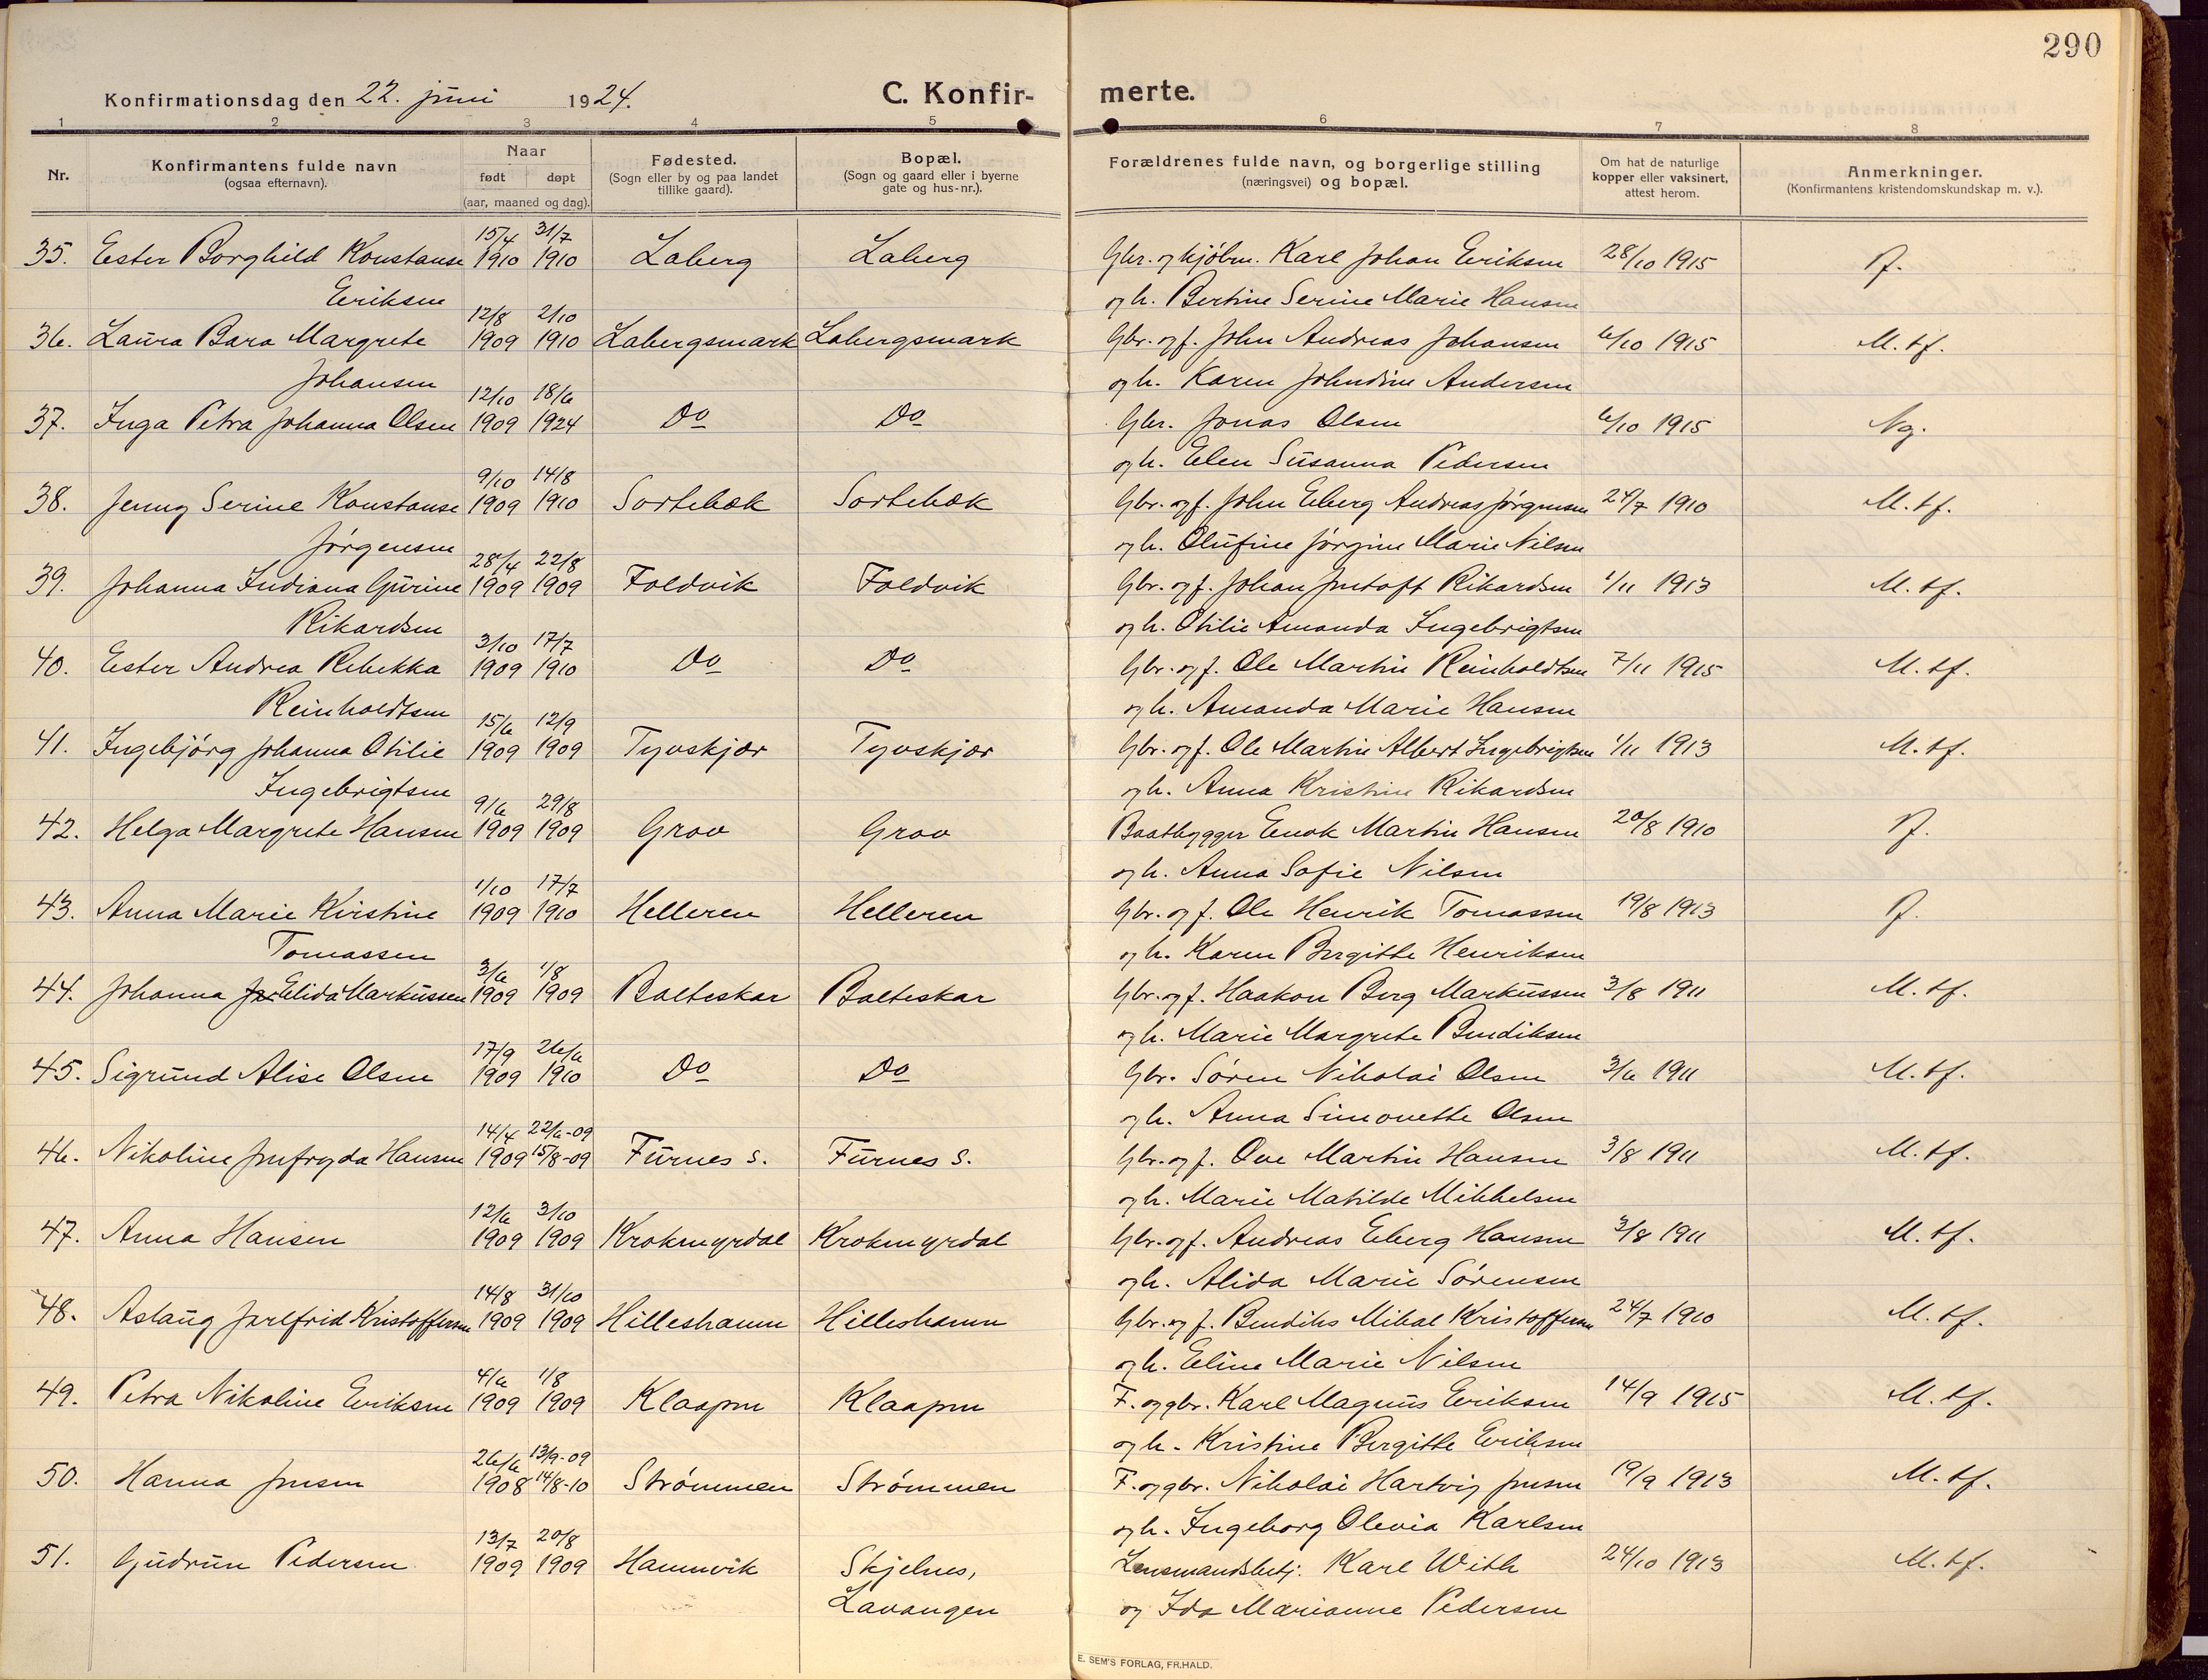 290
Konfirmationsdag den 22. juni 1924. C. Konfir- merte.
1 2 3 4 5 6 7 8
Nr. Konfirmantens fulde navn (ogsaa efternavn). Naar født døpt (aar, maaned og dag). Fødested. (Sogn eller by og paa landet tillike gaard). Bopæl. (Sogn og gaard eller i byerne gate og hus-nr.). Forældrenes fulde navn, og borgerlige stilling (næringsvei) og bopæl. Om hat de naturlige kopper eller vaksinert, attest herom. Anmerkninger. (Konfirmantens kristendomskundskap m. v.).
15/4 31/7
35. Ester Borghild Konstanse 1910 1910 Laberg Laberg Gbr. og kjøbm. Karl Johan Eriksen 28/10 1915 J.
Eriksen og h. Bertine Serine Marie Hansen
12/8 2/10
36. Laura Bara Margrete 1909 1910 Labergsmark Labergsmark Gbr. og f. John Andreas Johansen 6/10 1915 M. tf.
Johansen og h. Karen Johndine Andersen
12/10 18/6
37. Inga Petra Johanna Olsen 1909 1924 Do Do Gbr. Jonas Olsen 6/10 1915 Ng.
og h. Elen Susanna Pedersen
9/10 14/8
38. Jenny Serine Konstanse 1909 1910 Sortebæk Sortebæk Gbr. og f. John Eberg Andreas Jørgensen 24/7 1910 M. tf.
Jørgensen og h. Olufine Jørgine Marie Nilsen
28/4 22/8
39. Johanna Indiana Gurine 1909 1909 Foldvik Foldvik Gbr. og f. Johan Jentoft Rikardsen 1/11 1913 M. tf.
Rikardsen og h. Otilie Amanda Ingebrigtsen
3/10 17/7
40. Ester Andrea Rebekka 1909 1910 Do Do Gbr. og f. Ole Martin Reinholdtsen 7/11 1915 M. tf.
Reinholdtsen og h. Amanda Marie Hansen
15/6 12/9
41. Ingebjørg Johanna Otilie 1909 1909 Tyvskjær Tyvskjær Gbr. og f. Ole Martin Albert Ingebrigtsen 1/11 1913 M. tf.
Ingebrigtsen og h. Anna Kristine Rikardsen
9/6 29/8
42. Helga Margrete Hansen 1909 1909 Grov Grov Baatbygger Enok Martin Hansen 20/8 1910 J.
og h. Anna Sofie Nilsen
1/10 17/7
43. Anna Marie Kirstine 1909 1910 Helleren Helleren Gbr. og f. Ole Henrik Tomassen 19/8 1913 J.
Tomassen og h. Karen Birgitte Henriksen
3/6 1/8
44. Johanna Elida Markussen 1909 1909 Balteskar Balteskar Gbr. og f. Haakon Berg Markussen 3/8 1911 M. tf.
og h. Marie Margrete Bendiksen
17/9 26/6
45. Sigrund Alise Olsen 1909 1910 Do Do Gbr. Søren Nikolai Olsen 3/6 1911 M. tf.
og h. Anna Simonette Olsen
14/4 22/6-09
46. Nikoline Jenfryda Hansen 1909 15/8-09 Furnes s. Furnes s. Gbr. og f. Ove Martin Hansen 3/8 1911 M. tf.
og h. Marie Matilde Mikkelsen
12/6 3/10
47. Anna Hansen 1909 1909 Krokmyrdal Krokmyrdal Gbr. og f. Andreas Eberg Hansen 3/8 1911 M. tf.
og h. Alida Marie Sørensen
14/8 31/10
48. Aslaug Jarlfrid Kristoffersen 1909 1909 Hilleshamn Hilleshamn Gbr. og f. Bendiks Mikal Kristoffersen 24/7 1910 M. tf.
og h. Eline Marie Nilsen
4/6 1/8
49. Petra Nikoline Eriksen 1909 1909 Klaapen Klaapen F. og gbr. Karl Magnus Eriksen 14/9 1915 M. tf.
og h. Kristine Bergitte Eriksen
26/6 13/9-09
50. Hanna Jensen 1908 14/8-10 Strømmen Strømmen F. og gbr. Nikolai Hartvig Jensen 19/9 1913 M. tf.
og h. Ingeborg Olevia Karlsen
13/7 20/8
51. Gudrun Pedersen 1909 1909 Hamnvik Skjelnes, Lensmandsbetj. Karl With 24/10 1913 M. tf.
Lavangen og Ida Marianne Pedersen
E. SEM'S FORLAG, FR.HALD.